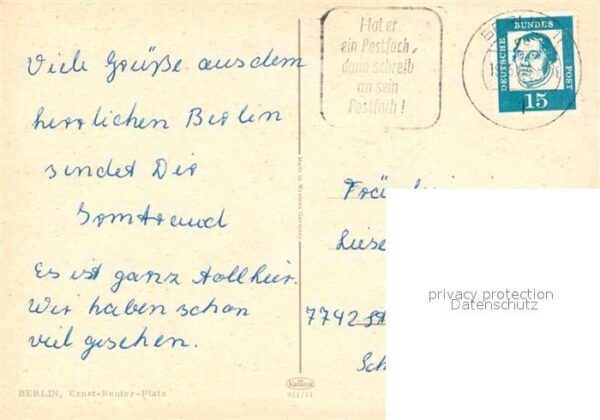 Viele Grüße aus dem
herrlichen Berlin
sendet Dir
Irmtraud
Es ist ganz toll hier.
Wir haben schon
viel gesehen.
BERLIN, Ernst-Reuter-Platz
Made in Western Germany
Hat er
ein Postfach,
dann schreib
an sein
Postfach!
DEUTSCHE BUNDES POST
15
Fräulein
Liese
7742 St
Sch
privacy protection
Datenschutz
Krüger
921/31